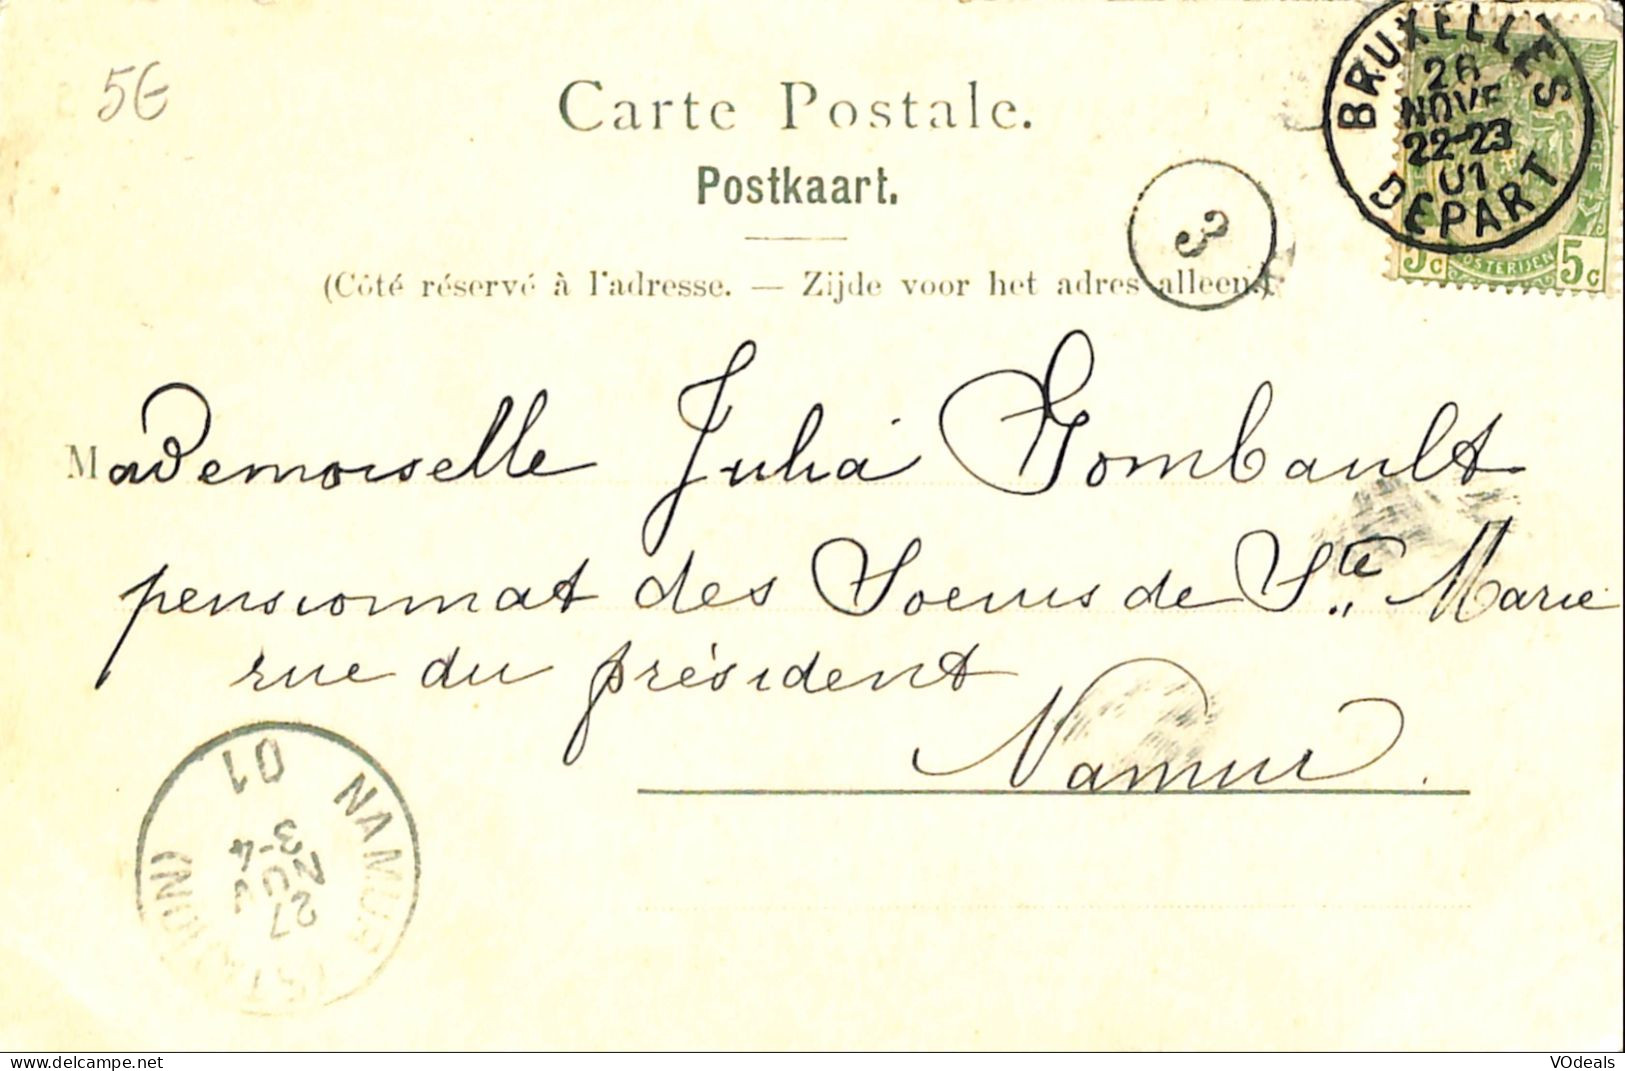 5€
Carte Postale.
Postkaart.
(Côté réservé à l'adresse. — Zijde voor het adres alleen.)
BRUXELLES
26
NOVE
22-23
01
DEPART
5c
POSTERIJEN
5c
3
Mademoiselle Julia Gombault
pensionnat des Soeurs de Ste Marie
rue du président
Namur.
NAMUR
27
NOV
3-4
01
VOdeals